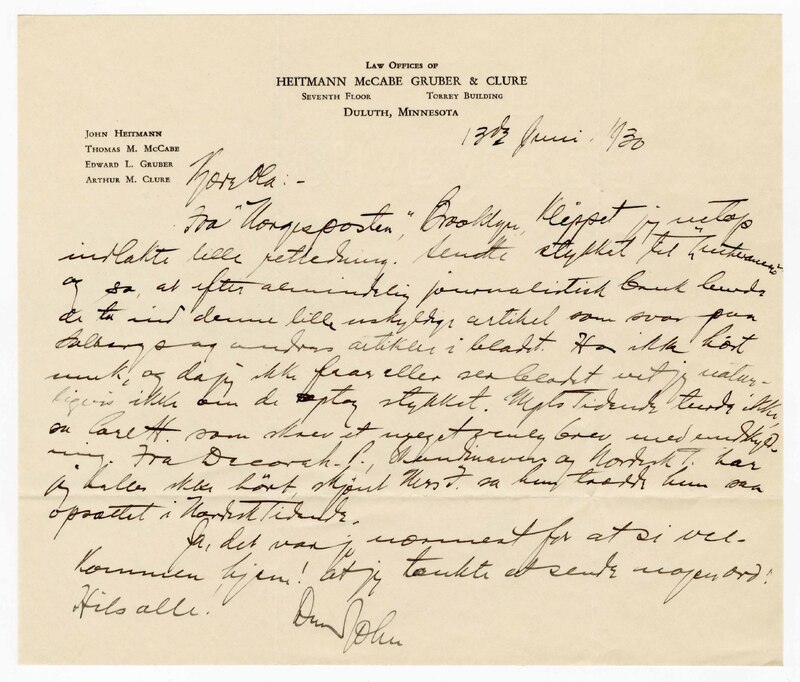 Law Offices of
HEITMANN McCABE GRUBER & CLURE
Seventh Floor Torrey Building
Duluth, Minnesota
John Heitmann
Thomas M. McCabe
Edward L. Gruber
Arthur M. Clure
13de Juni. 1930
Kjære Ola: -
Fra "Norgesposten", Brooklyn, klippet jeg netop
indlakte lille retledning. Sendte stykket til
og sa, at efter almindelig journalistisk bruk burde
de ta ind denne lille uskyldige artikel som svar paa
Solbergs og andres artikler i bladet. Ha ikke hört
muk, og da jeg ikke faar eller ser bladet vet jeg natur-
ligvis ikke om de optog stykket. Mpls Tidende turde ikke,
sa Carl H. som skrev et meget venlig brev med undskyld-
ning. Fra Decorah P., Skandinaven og Nordisk T. har
jeg heller ikke hört, skjönt Mrs J. sa hun trodde hun saa
opsattet i Nordisk Tidende.
Ja, det var jo nærmest for at si vel-
kommen hjem! at jeg tænkte at sende nogen ord!
Hils alle.
Din John